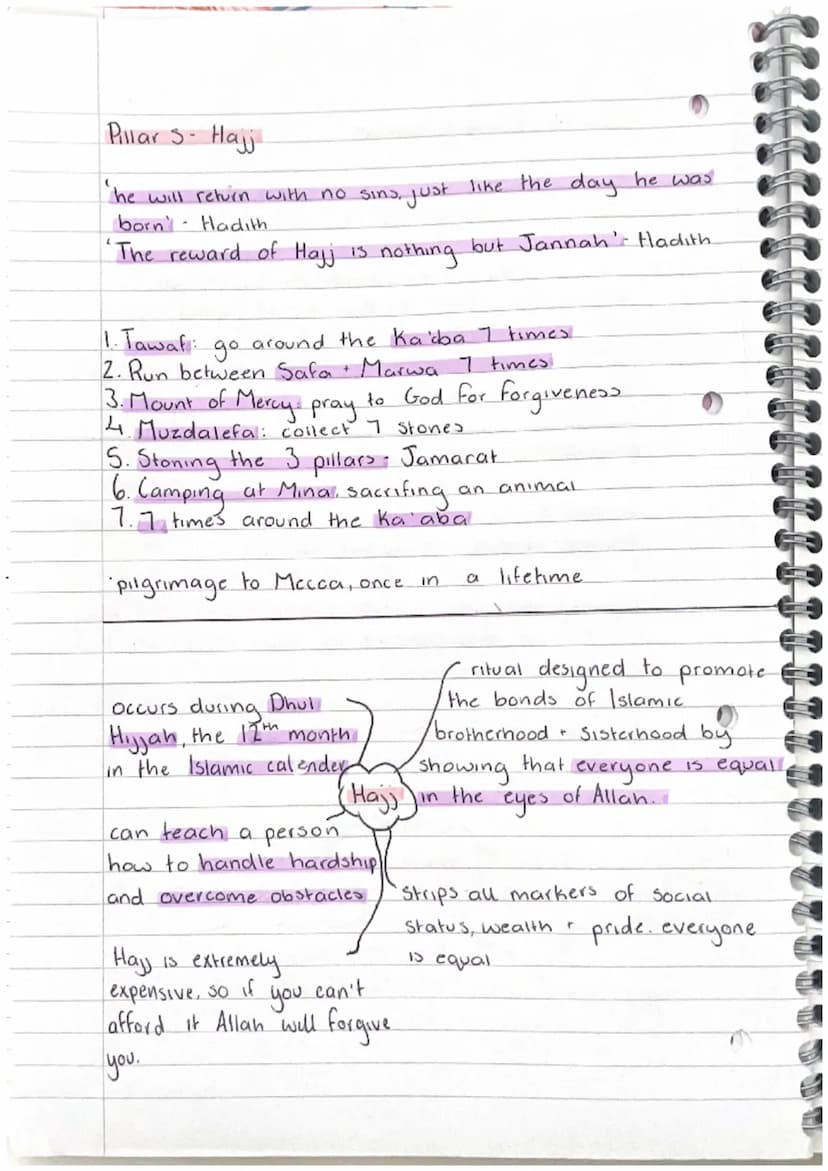 Pillar 5 - Hajj
'he will return with no sins, just like the day he was
born' - Hadith
'The reward of Hajj is nothing but Jannah' - Hadith
1. Tawaf: go around the Ka'ba 7 times
2. Run between Safa + Marwa 7 times
3. Mount of Mercy: pray to God for forgiveness
4. Muzdalefa: collect 7 stones
5. Stoning the 3 pillars - Jamarat
6. Camping at Mina, sacrifing an animal
7. 7 times around the Ka'aba
'pilgrimage to Mecca, once in a lifetime
occurs during Dhul
Hijjah, the 12th month
in the Islamic calender
ritual designed to promote
the bonds of Islamic
brotherhood + Sisterhood by
showing that everyone is equal
in the eyes of Allah.
Hajj
can teach a person
how to handle hardship
and overcome obstacles
Strips all markers of social
status, wealth + pride. everyone
is equal
Hajj is extremely
expensive, so if you can't
afford it Allah will forgive
you.